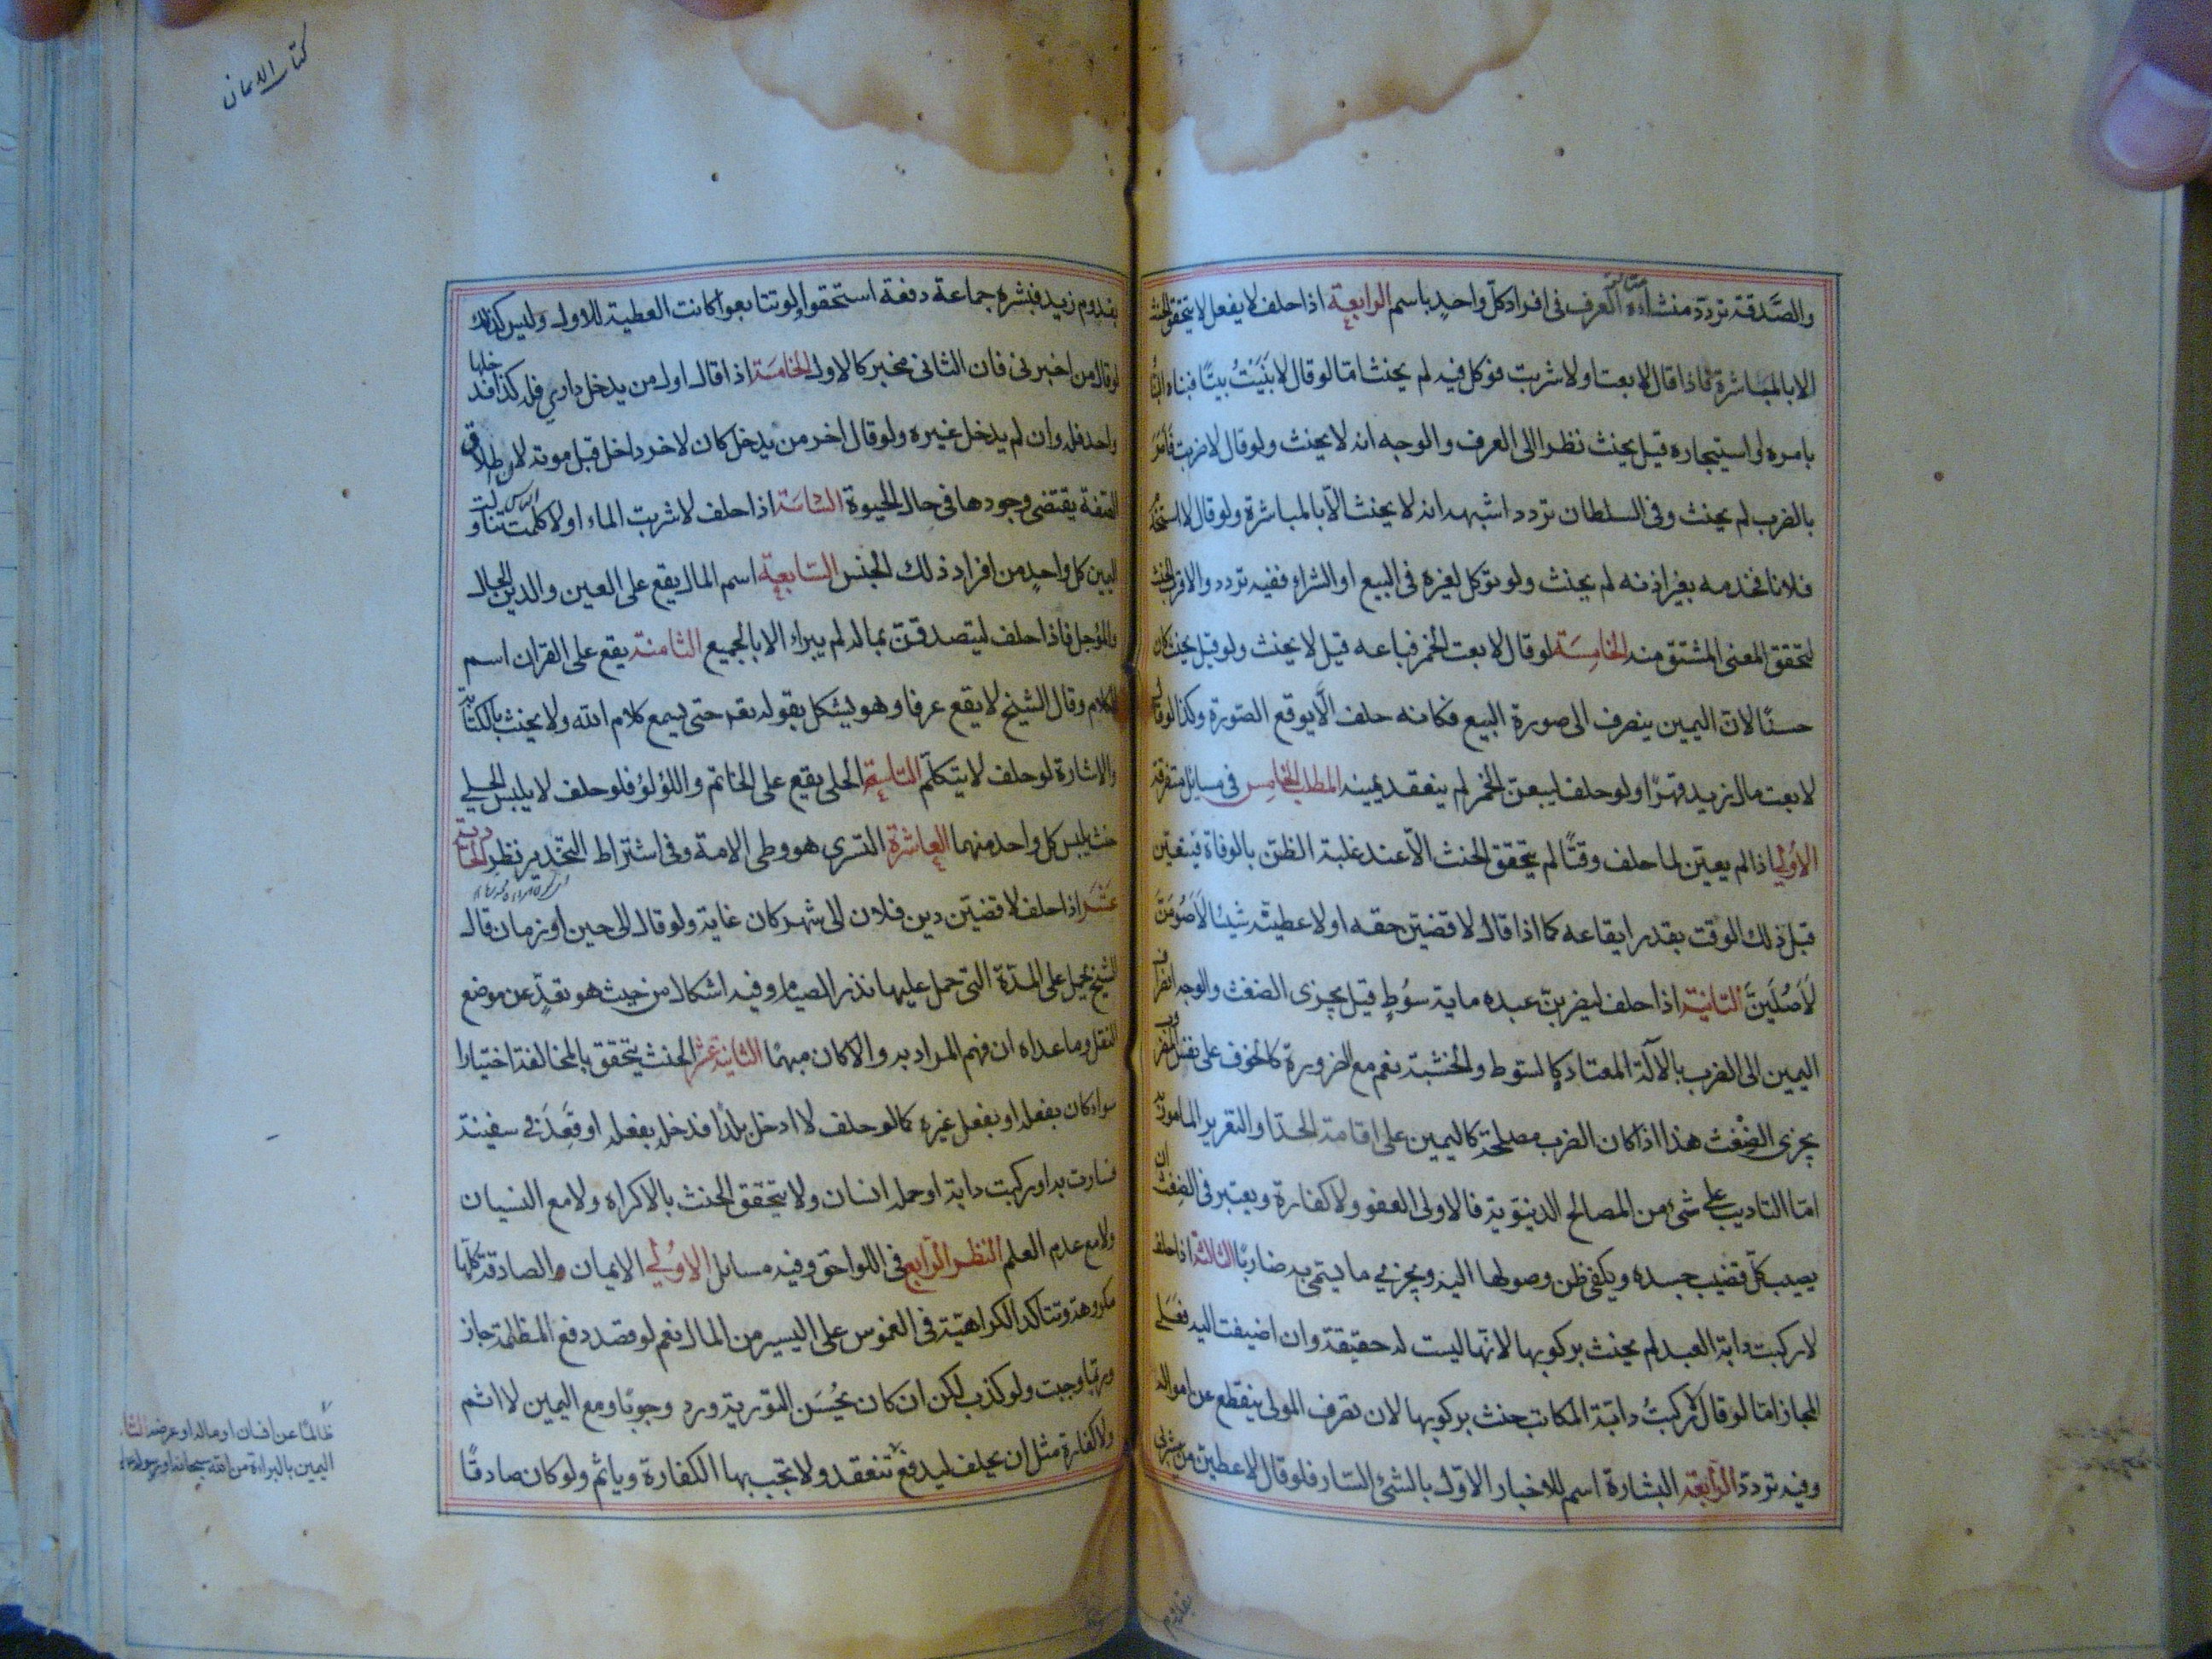 والصدقة تردد منشاءه العرف فى افراد كل واحد باسم الرابعة اذا حلف لا يفعل لا يتحقق الحنث
الا بالمباشرة فاذا قال لا بعت او لا شريت فوكل فيه لم يحنث امّا لو قال لا بَنَيْتُ بيتًا فبناه البنّا
بامره او استيجاره قيل يحنث نظرا الى العرف والوجه انه لا يحنث ولو قال لا ضربت فامر
بالضرب لم يحنث وفى السلطان تردد اشبهه انه لا يحنث الّا بالمباشرة ولو قال لا استخدمُ
فلانا فخدمه بغير اذنه لم يحنث ولو توكل لغيره فى البيع او الشراء ففيه تردد والاقرب الحنث
لتحقق المعنى المشتق منه الخامِسَة لو قال لا بعت الخمر فباعه قيل لا يحنث ولو قيل يحنث كان
حسنًا لانّ اليمين ينصرف الى صورة البيع فكانه حلف الّا يوقع الصّورة وكذا لو قال
لا بعت مال زيد قهرًا ولو حلف ليبعن الخمر لم ينعقد يمينه المطلب الخامِس فى مسايل متفرقة
الاولى اذا لم يعيّن لما حلف وقتًا لم يتحقق الحنث الّا عند غلبة الظن بالوفاة فيتعيّن
قبل ذلك الوقت بقدر ايقاعه كما اذا قال لا قضينّ حقه او لا عطينّه شيئا لَاَصُومَنَّ
لَاَصُلِّيَنَّ الثانية اذا حلف ليضربنّ عبده ماية سوُطٍ قيل يجزى الضغث والوجه انصراف
اليمين الى الضرب بالالة المعتادة كالسّوط والخشبة نعم مع الضرورة كالخوف على نفس المضروب
يجزى الضِغْث هذا اذا كان الضرب مصلحة كاليمين على اقامة الحدّ او التعزير المامور به
امّا التاديب على شىء من المصالح الدنيويّة فالاولى العفو ولا كفارة ويعتبر فى الضِغث ان
يصيب كلّ قضيب جسده ويكفى ظن وصولها اليه ويجزى ما يسمّى به ضاربًا الثالثة اذا حلف
لا ركبت دابة العبد لم يحنث بركوبها لانّها ليست له حقيقة وان اضيفت اليه فعَلى
المجاز امّا لو قال لا ركبتُ دابّة المكاتب حنث بركوبها لان تصرف المولى ينقطع عن امواله
وفيه تردد الرّابعَة البشارة اسم للاخبار الاوّل بالشئ السّار فلو قال لاعطين من بشرنى
بقدوم
كتاب الايمان
بقدوم زيد فبشره جماعة دفعة استحقوا ولو تتابعوا كانت العطية للاول وليس كذلك
لو قال من اخبرنى فان الثانى مخبر كالاول الخامسَة اذا قال اول من يدخل دارى فله كذا فدخلها
واحد فله وان لم يدخل غيره ولو قال اخر من يدخل كان لاخر داخل قبل موته لان اطلاق
الصفة يقتضى وجودها فى حال الحيوة السّادسَة اذا حلف لا شربت الماء او لا كلمت الناس تناولت
اليمين كل واحدٍ من افراد ذلك الجنس السّابعة اسم المال يقع على العين والدين الحال
والمؤجل فاذا حلف ليتصدقنّ بماله لم يبراء الا بالجميع الثامنة يقع على القران اسم
الكلام وقال الشيخ لا يقع عرفا وهو يشكل بقوله تعم حتى يسمع كلام الله ولا يحنث بالكتابة
والاشارة لو حلف لا يتكلّم التاسعة الحلى يقع على الخاتم واللؤلؤ فلو حلف لا يلبس الحلى
حنث بلبس كل واحد منهما العاشرة التسرى هو وطى الامة وفى اشتراط التخدير نظر الحادية
عَشَر اذا حلف لا قضيّن دين فلان الى شهر كان غاية ولو قال الى حين او زمان قال
الشيخ يحمل على المدّة التى حمل عليها نذر الصيام وفيه اشكال من حيث هو تعدٍّ عن موضع
النقل وما عداه ان فهم المراد به والا كان مبهمًا الثانية عشر الحنث يتحقق بالمخالفة اختيارا
سواء كان بفعله او بفعل غيره كما لو حلف لا ادخل بلدًا فدخله بفعله او قعَدَ فى سفينة
فسارت به او ركبت دابة او حمله انسان ولا يتحقق الحنث بالاكراه ولا مع النسيان
ولا مع عدم العلم النظر الرّابع فى اللواحق وفيه مسائل الاوُلى الايمان الصادقة كلّها
مكروهة وتتاكد الكراهيّة فى الغموس على اليسير من المال نعم لو قصد دفع المظلمة جاز
وربّما وجبت ولو كذب لكن ان كان يحُسَن التورية ورى وجوبًا ومع اليمين لا اثم
ولا كفارة مثل ان يحلف ليدفع لا تنعقد ولا تجب بها الكفارة وياثم ولو كان صادقًا
ظالمًا عن انسان او ماله او عرضه
اليمين بالبراءة من الله سبحانه او رسوله